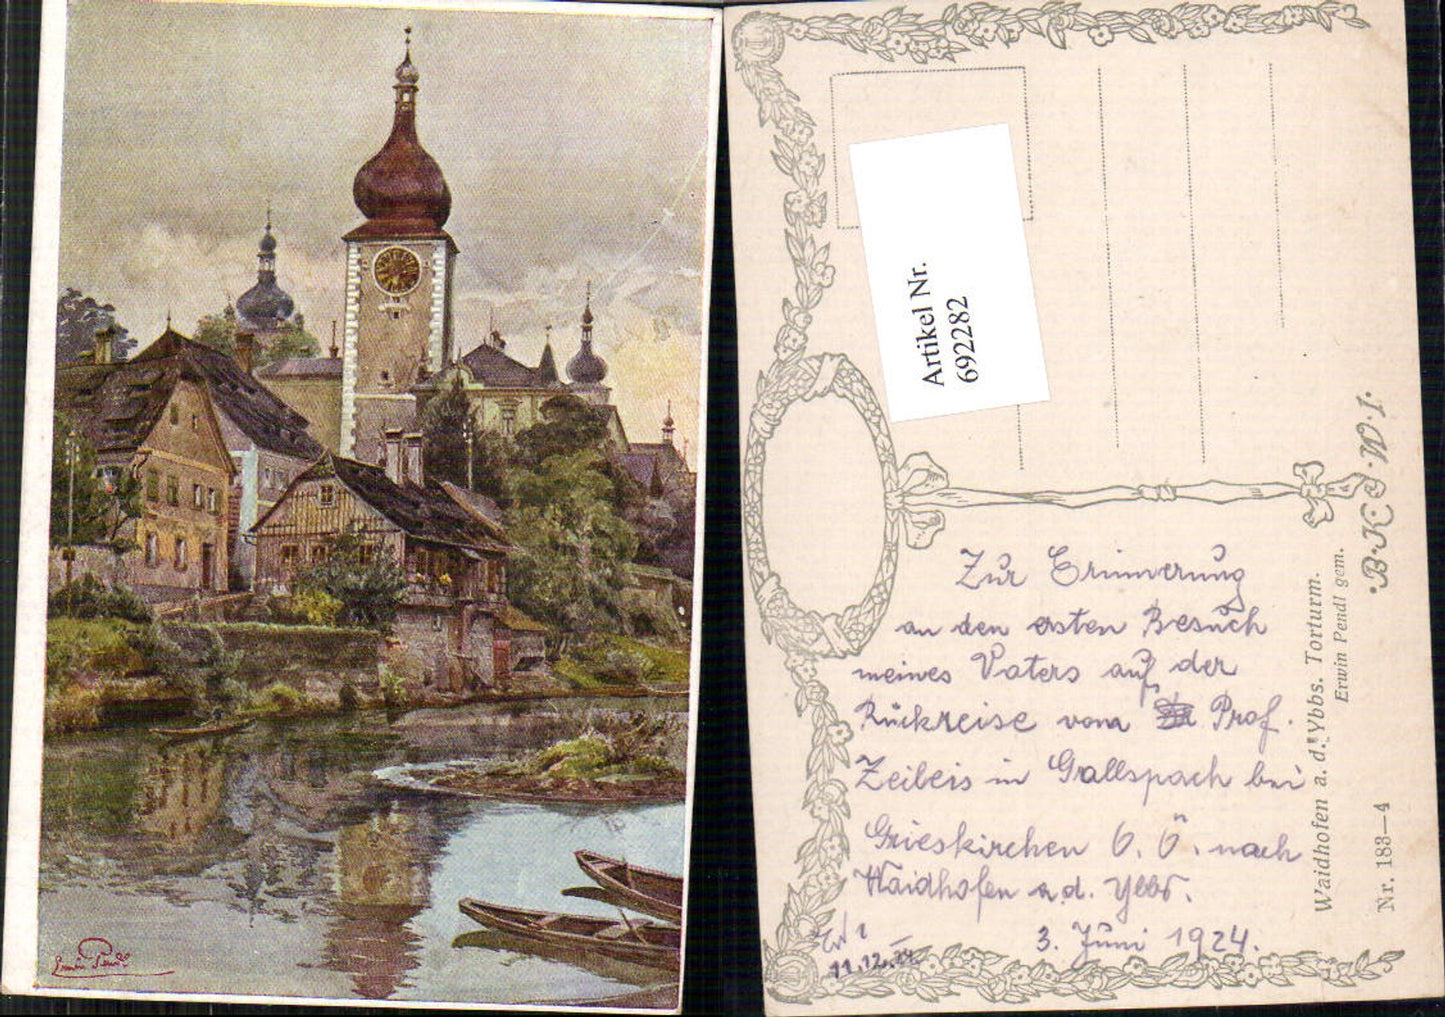 Erwin Pendl
Artikel Nr.
692282
Zur Erinnerung
an den ersten Besuch
meines Vaters auf der
Rückreise vom Prof.
Zeileis in Gallspach bei
Grieskirchen O. Ö. nach
Waidhofen a.d. Ybbs.
3. Juni 1924.
11.12.
Waidhofen a. d. Ybbs. Torturm.
Erwin Pendl gem.
Nr. 183—4
B·K·W·I·